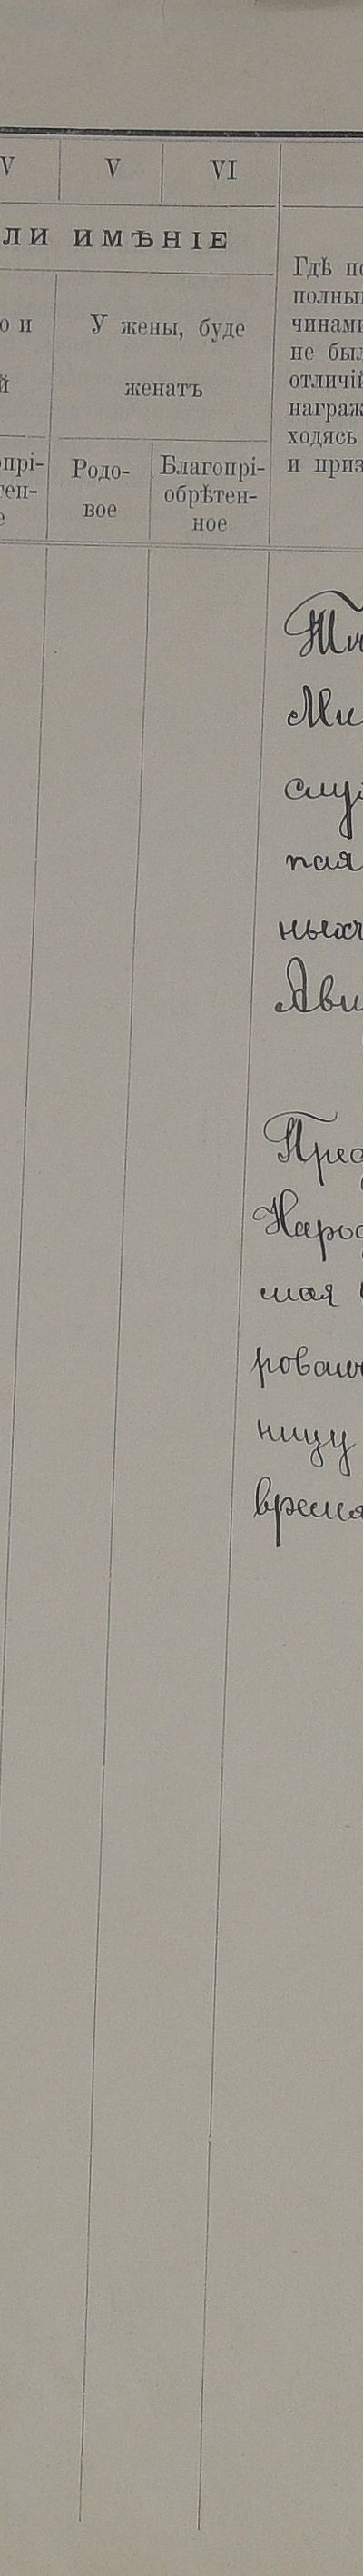 V V VI
ЛИ ИМѢНІЕ
о и
й
У жены, буде
женатъ
опрі-
тен-
е
Родо-
вое
Благопрі-
обрѣтен-
ное
Гдѣ по
полны
чинами
не был
отличій
награж
ходясь
и приз
Ми
слу
пая
ных
Яви
Пред
Народ
шая
рован
ницу
время